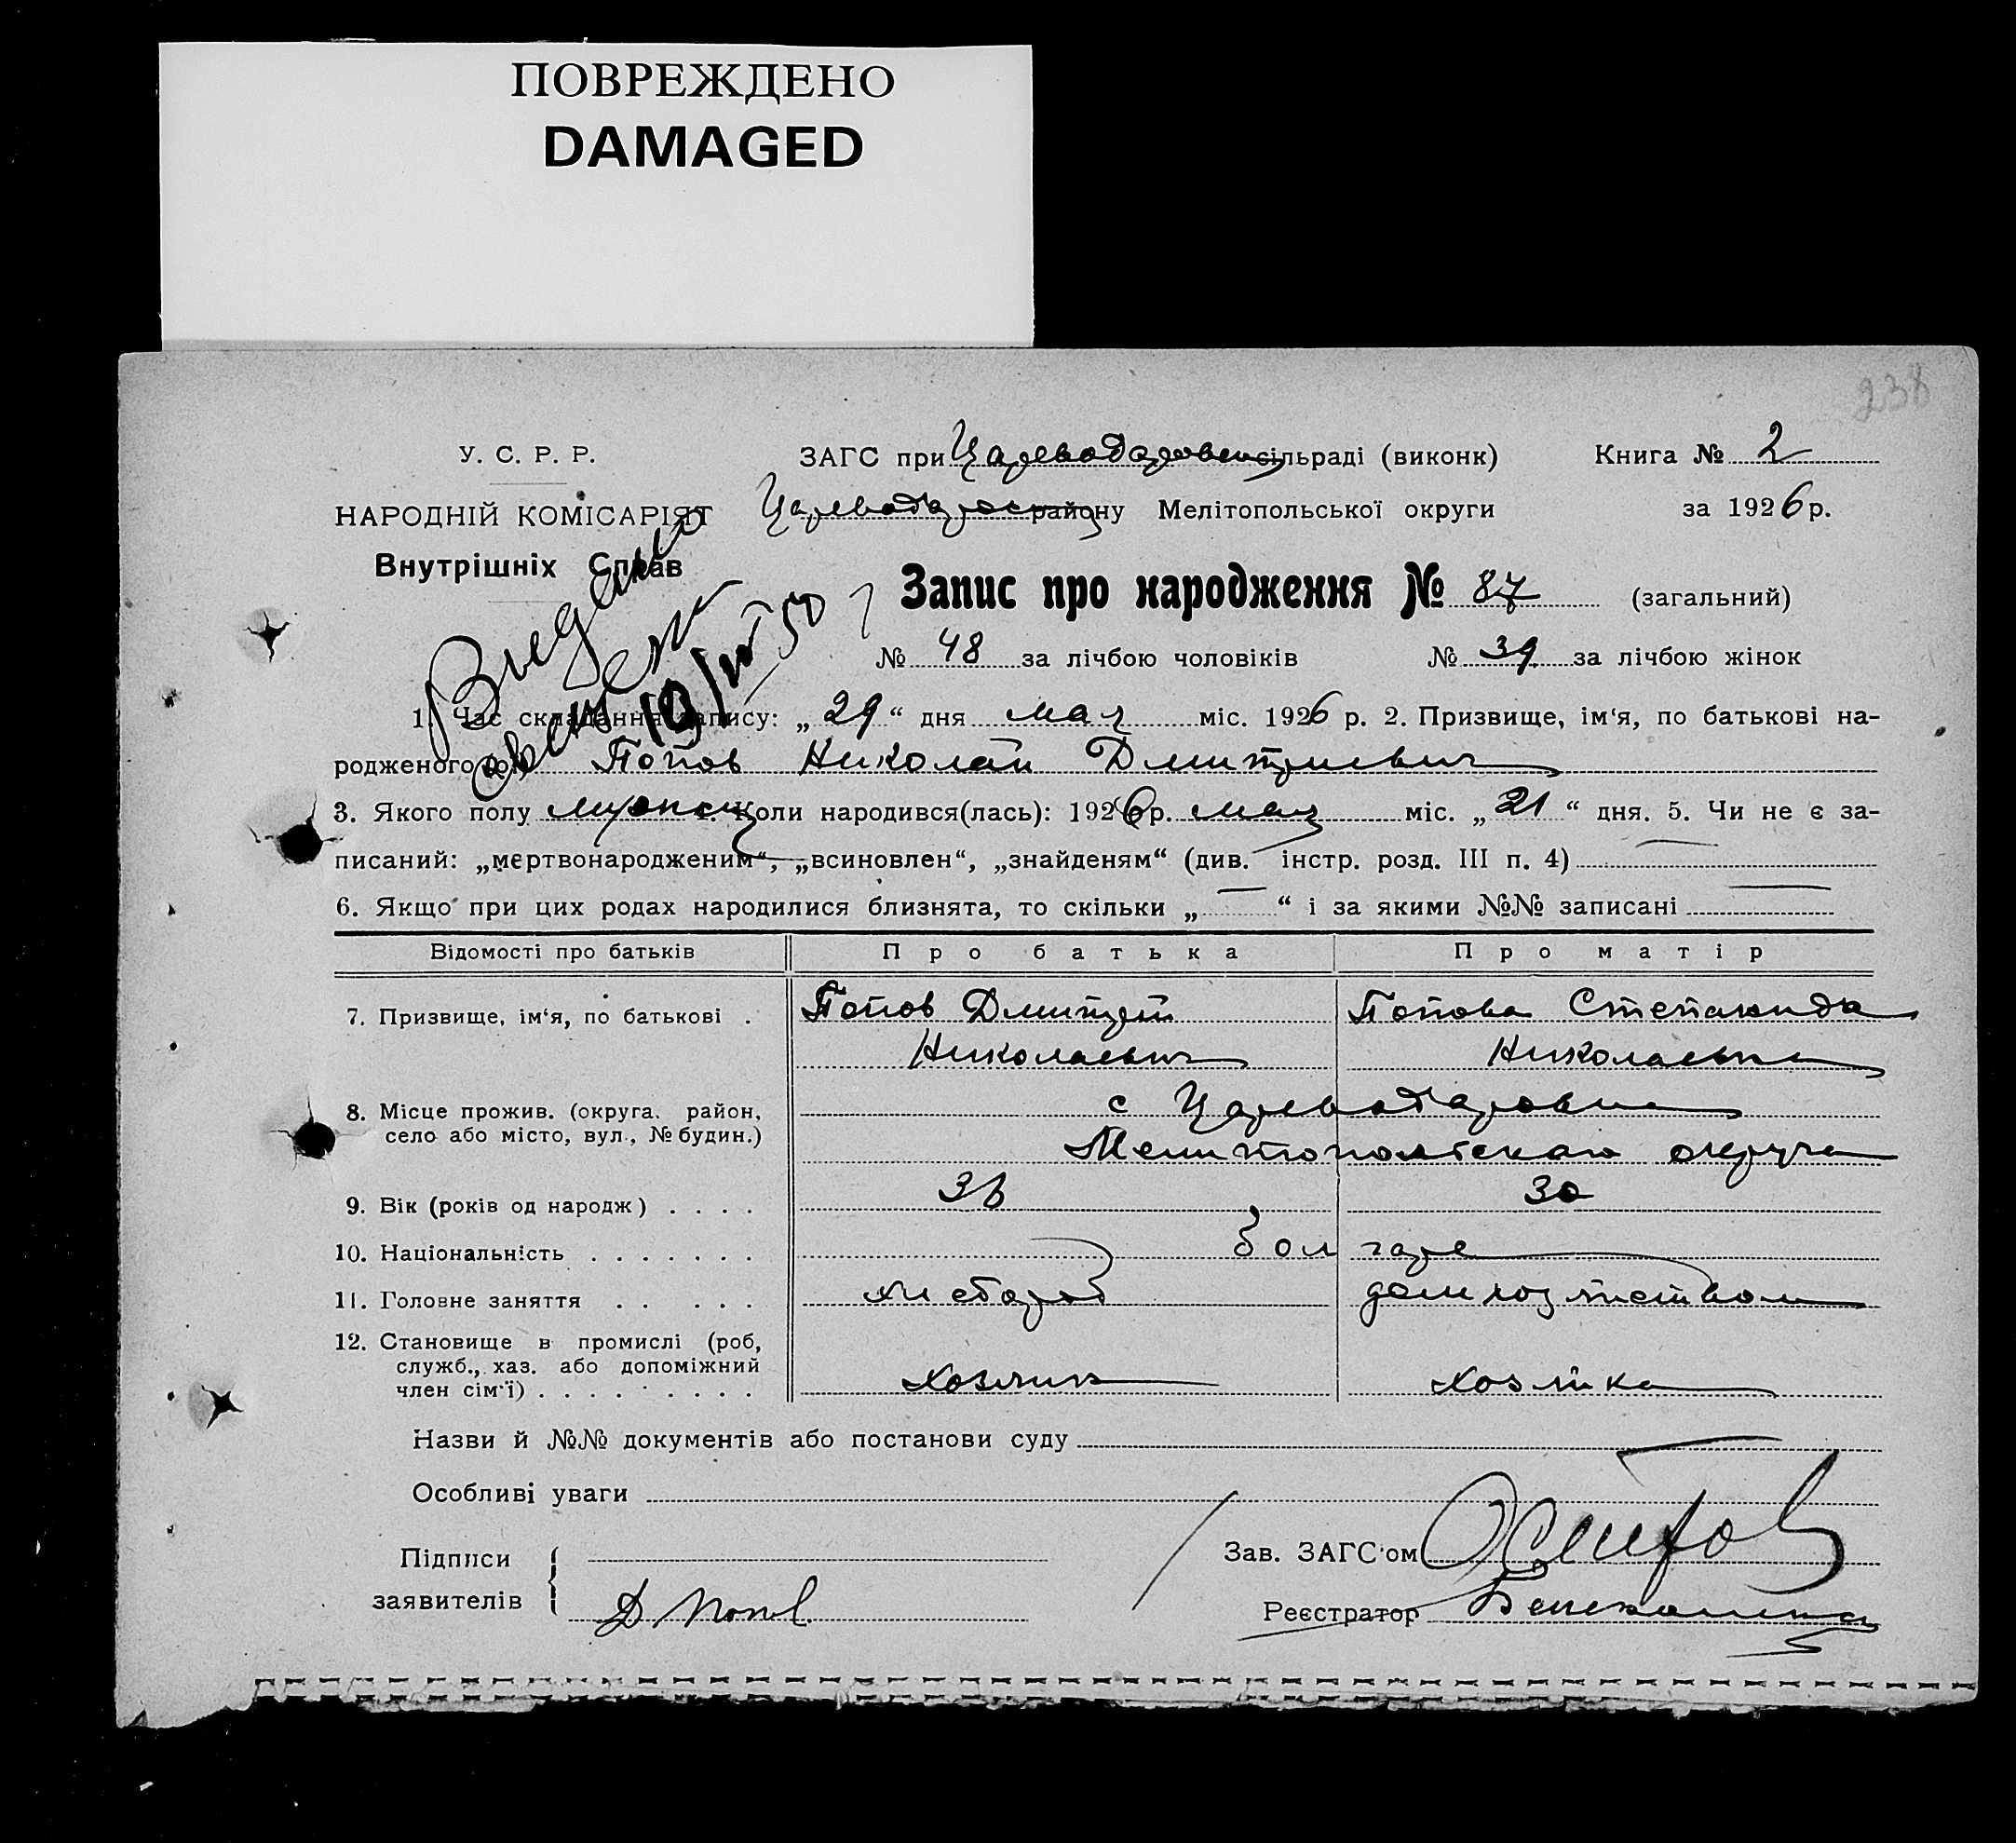 ПОВРЕЖДЕНО
DAMAGED
238
У. С. Р. Р.
НАРОДНІЙ КОМІСАРІЯТ
Внутрішніх Справ
ЗАГС при Царевода­ровск сільраді (виконк)
Цареводаровск району Мелітопольської округи
Книга № 2
за 1926 р.
Видано
10/VII 50
Запис про народження № 87 (загальний)
№ 48 за лічбою чоловіків № 39 за лічбою жінок
1. Час складання запису: „ 29 “ дня мая міс. 1926 р. 2. Призвище, ім'я, по батькові на-
родженого(ої) Попов Николай Дмитриевич
3. Якого полу мужск 4. Коли народився(лась): 1926 р. мая міс. „ 21 “ дня. 5. Чи не є за-
писаний: „мертвонародженим“, „всиновлен“, „знайденям“ (див. інстр. розд. III п. 4) —
6. Якщо при цих родах народилися близнята, то скільки „ — “ і за якими №№ записані —
Відомості про батьків Про батька Про матір
7. Призвище, ім'я, по батькові . Попов Дмитрий Попова Степанида
Николаевич Николаевна
8. Місце прожив. (округа. район, с Цареводаровка
село або місто, вул., № будин.) Мелитопольскаго округа
9. Вік (років од народж) . . . . 36 30
10. Національність . . . . . . . болгаре
11. Головне заняття . . . . . хлебороб домхозяйством
12. Становище в промислі (роб,
служб., хаз. або допоміжний
член сім'ї) . . . . . . . . . хозяин хозяйка
Назви й №№ документів або постанови суду
Особливі уваги
Підписи
заявителів
Д Попов
Зав. ЗАГС'ом
Реєстратор